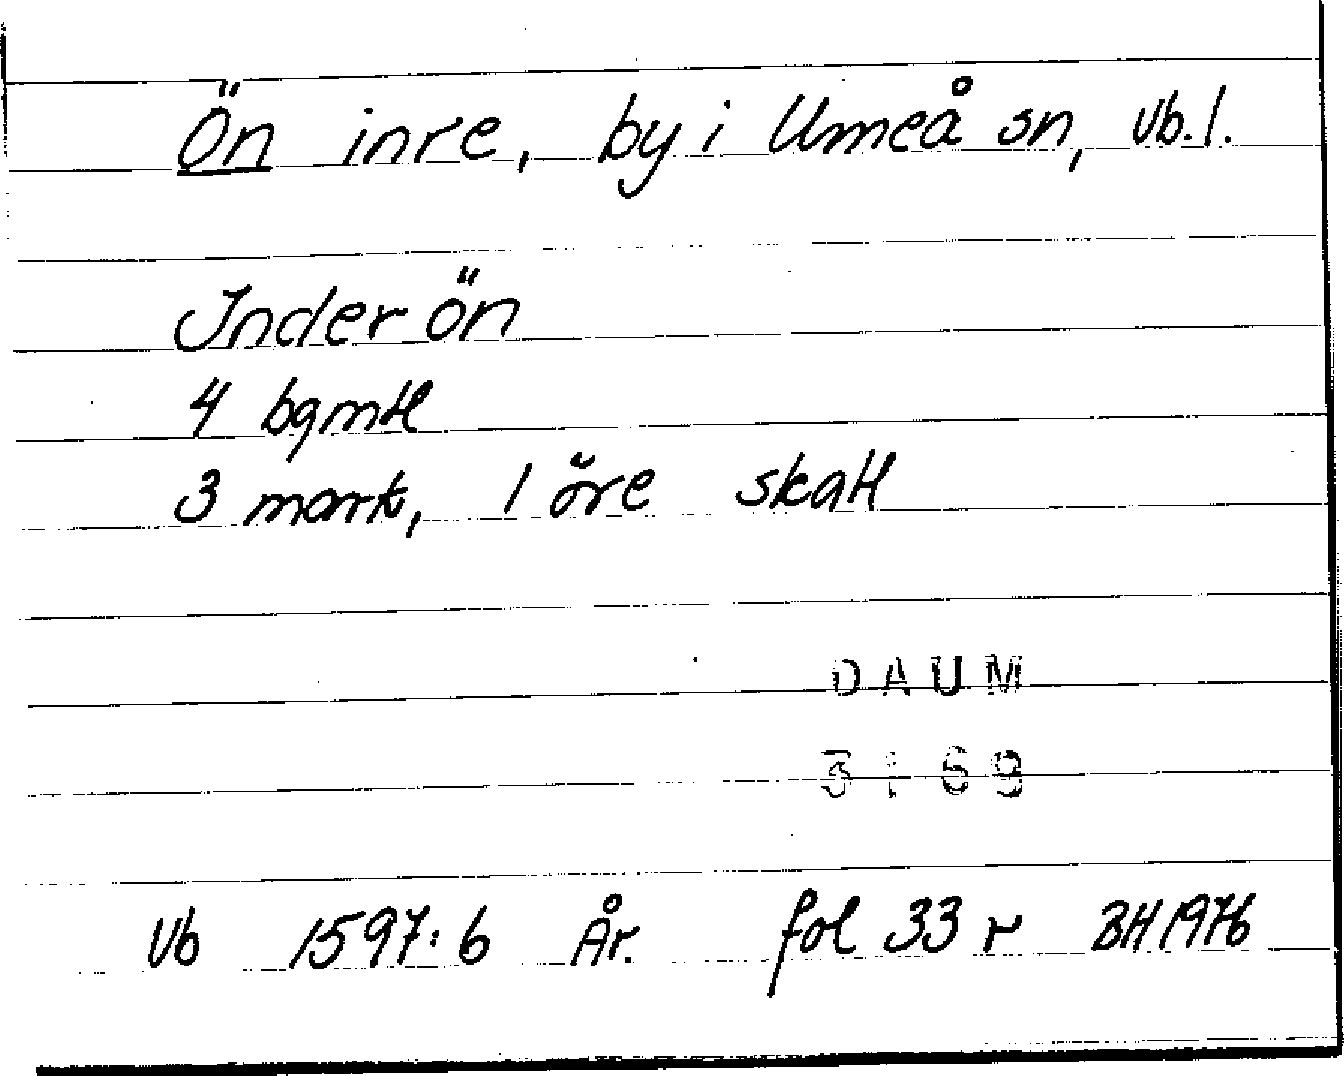 Ön inre, by i Umeå sn, Vb. l.
Inder ön
4 bgmtl
3 mark, 1 öre skatt
DAUM
3169
Vb 1597:6 År. fol 33 r BH 1976